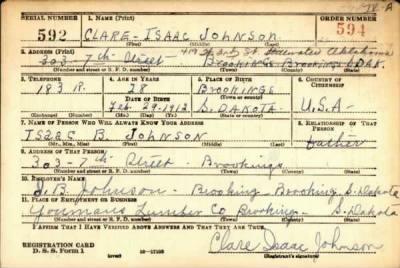 IV-A
SERIAL NUMBER 1. NAME (Print) ORDER NUMBER
592 CLARE - ISAAC JOHNSON 594
(First) (Middle) (Last)
2. ADDRESS (Print) Stillwater Oklahoma
303 - 7th Street Brookings Brookings S. DAK.
(Number and street or R. F. D. number) (Town) (County) (State)
3. TELEPHONE 4. AGE IN YEARS 5. PLACE OF BIRTH 6. COUNTRY OF CITIZENSHIP
183 R. 28 BROOKINGS
DATE OF BIRTH (Town or county)
Feb. 29 - 1912 S. DAKOTA U.S.A.
(Exchange) (Number) (Mo.) (Day) (Yr.) (State or country)
7. NAME OF PERSON WHO WILL ALWAYS KNOW YOUR ADDRESS 8. RELATIONSHIP OF THAT PERSON
ISAAC B. JOHNSON father
(Mr., Mrs., Miss) (First) (Middle) (Last)
9. ADDRESS OF THAT PERSON
303 - 7th Street - Brookings
(Number and street or R. F. D. number) (Town) (County) (State)
10. EMPLOYER'S NAME
I. B. Johnson - Brookings Brookings S. Dakota
11. PLACE OF EMPLOYMENT OR BUSINESS
Youmans Lumber Co Brookings - S. Dakota
(Number and street or R. F. D. number) (Town) (County) (State)
I AFFIRM THAT I HAVE VERIFIED ABOVE ANSWERS AND THAT THEY ARE TRUE.
REGISTRATION CARD
D. S. S. Form 1 (over) 16-17105 Clare Isaac Johnson
(Registrant's signature)